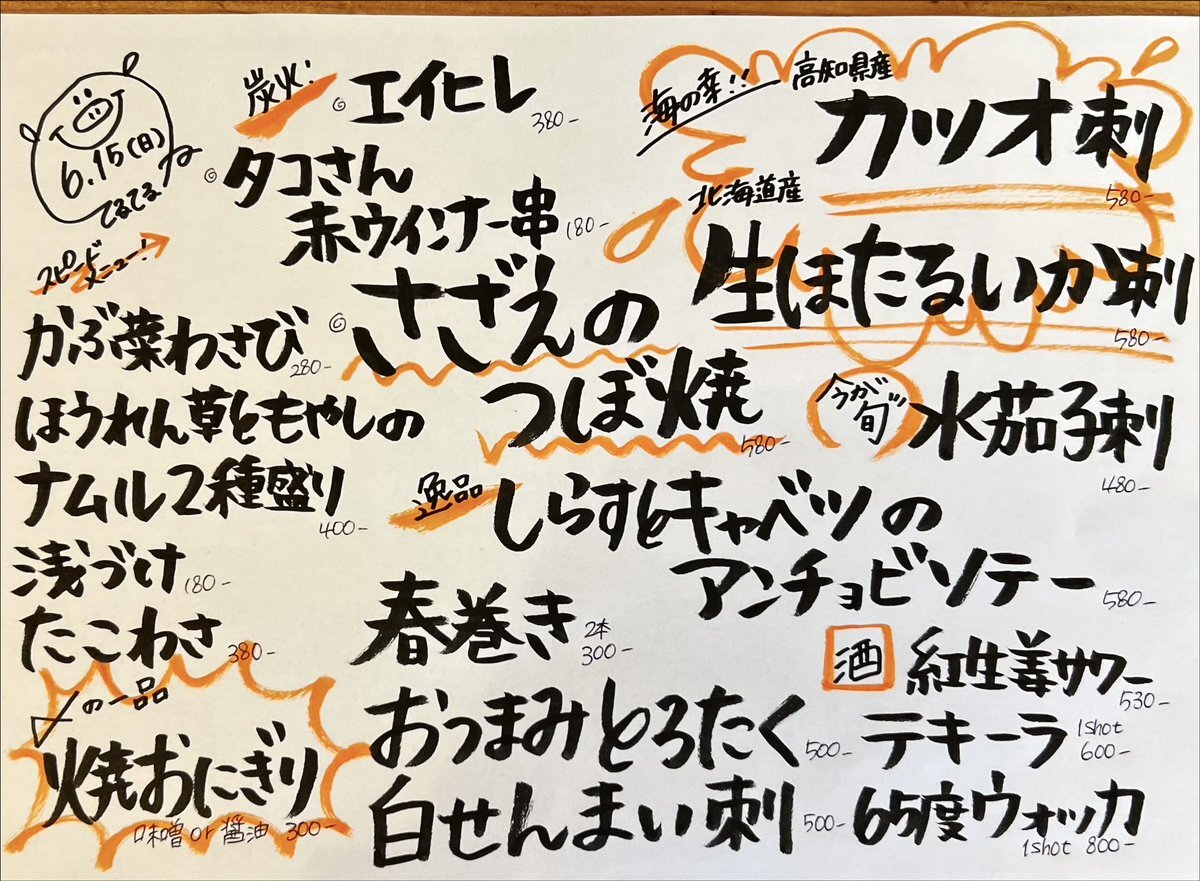 6.15(日)
てるてる
スピード
メニュー!
かぶ葉わさび
280-
ほうれん草ともやしの
ナムル2種盛り
400-
浅づけ
180-
たこわさ
380-
〆の一品
焼おにぎり
味噌 or 醤油 300-
炭火!
エイヒレ
380-
タコさん
赤ウインナー串
180-
さざえの
つぼ焼
580-
逸品
しらすとキャベツの
アンチョビソテー
580-
春巻き
2本
300-
おつまみとろたく
500-
白せんまい刺
500-
海の幸!!
高知県産
カツオ刺
580-
北海道産
生ほたるいか刺
580-
今が
旬
水茄子刺
480-
酒
紅生姜サワー
530-
テキーラ
1shot
600-
65度ウォッカ
1shot 800-